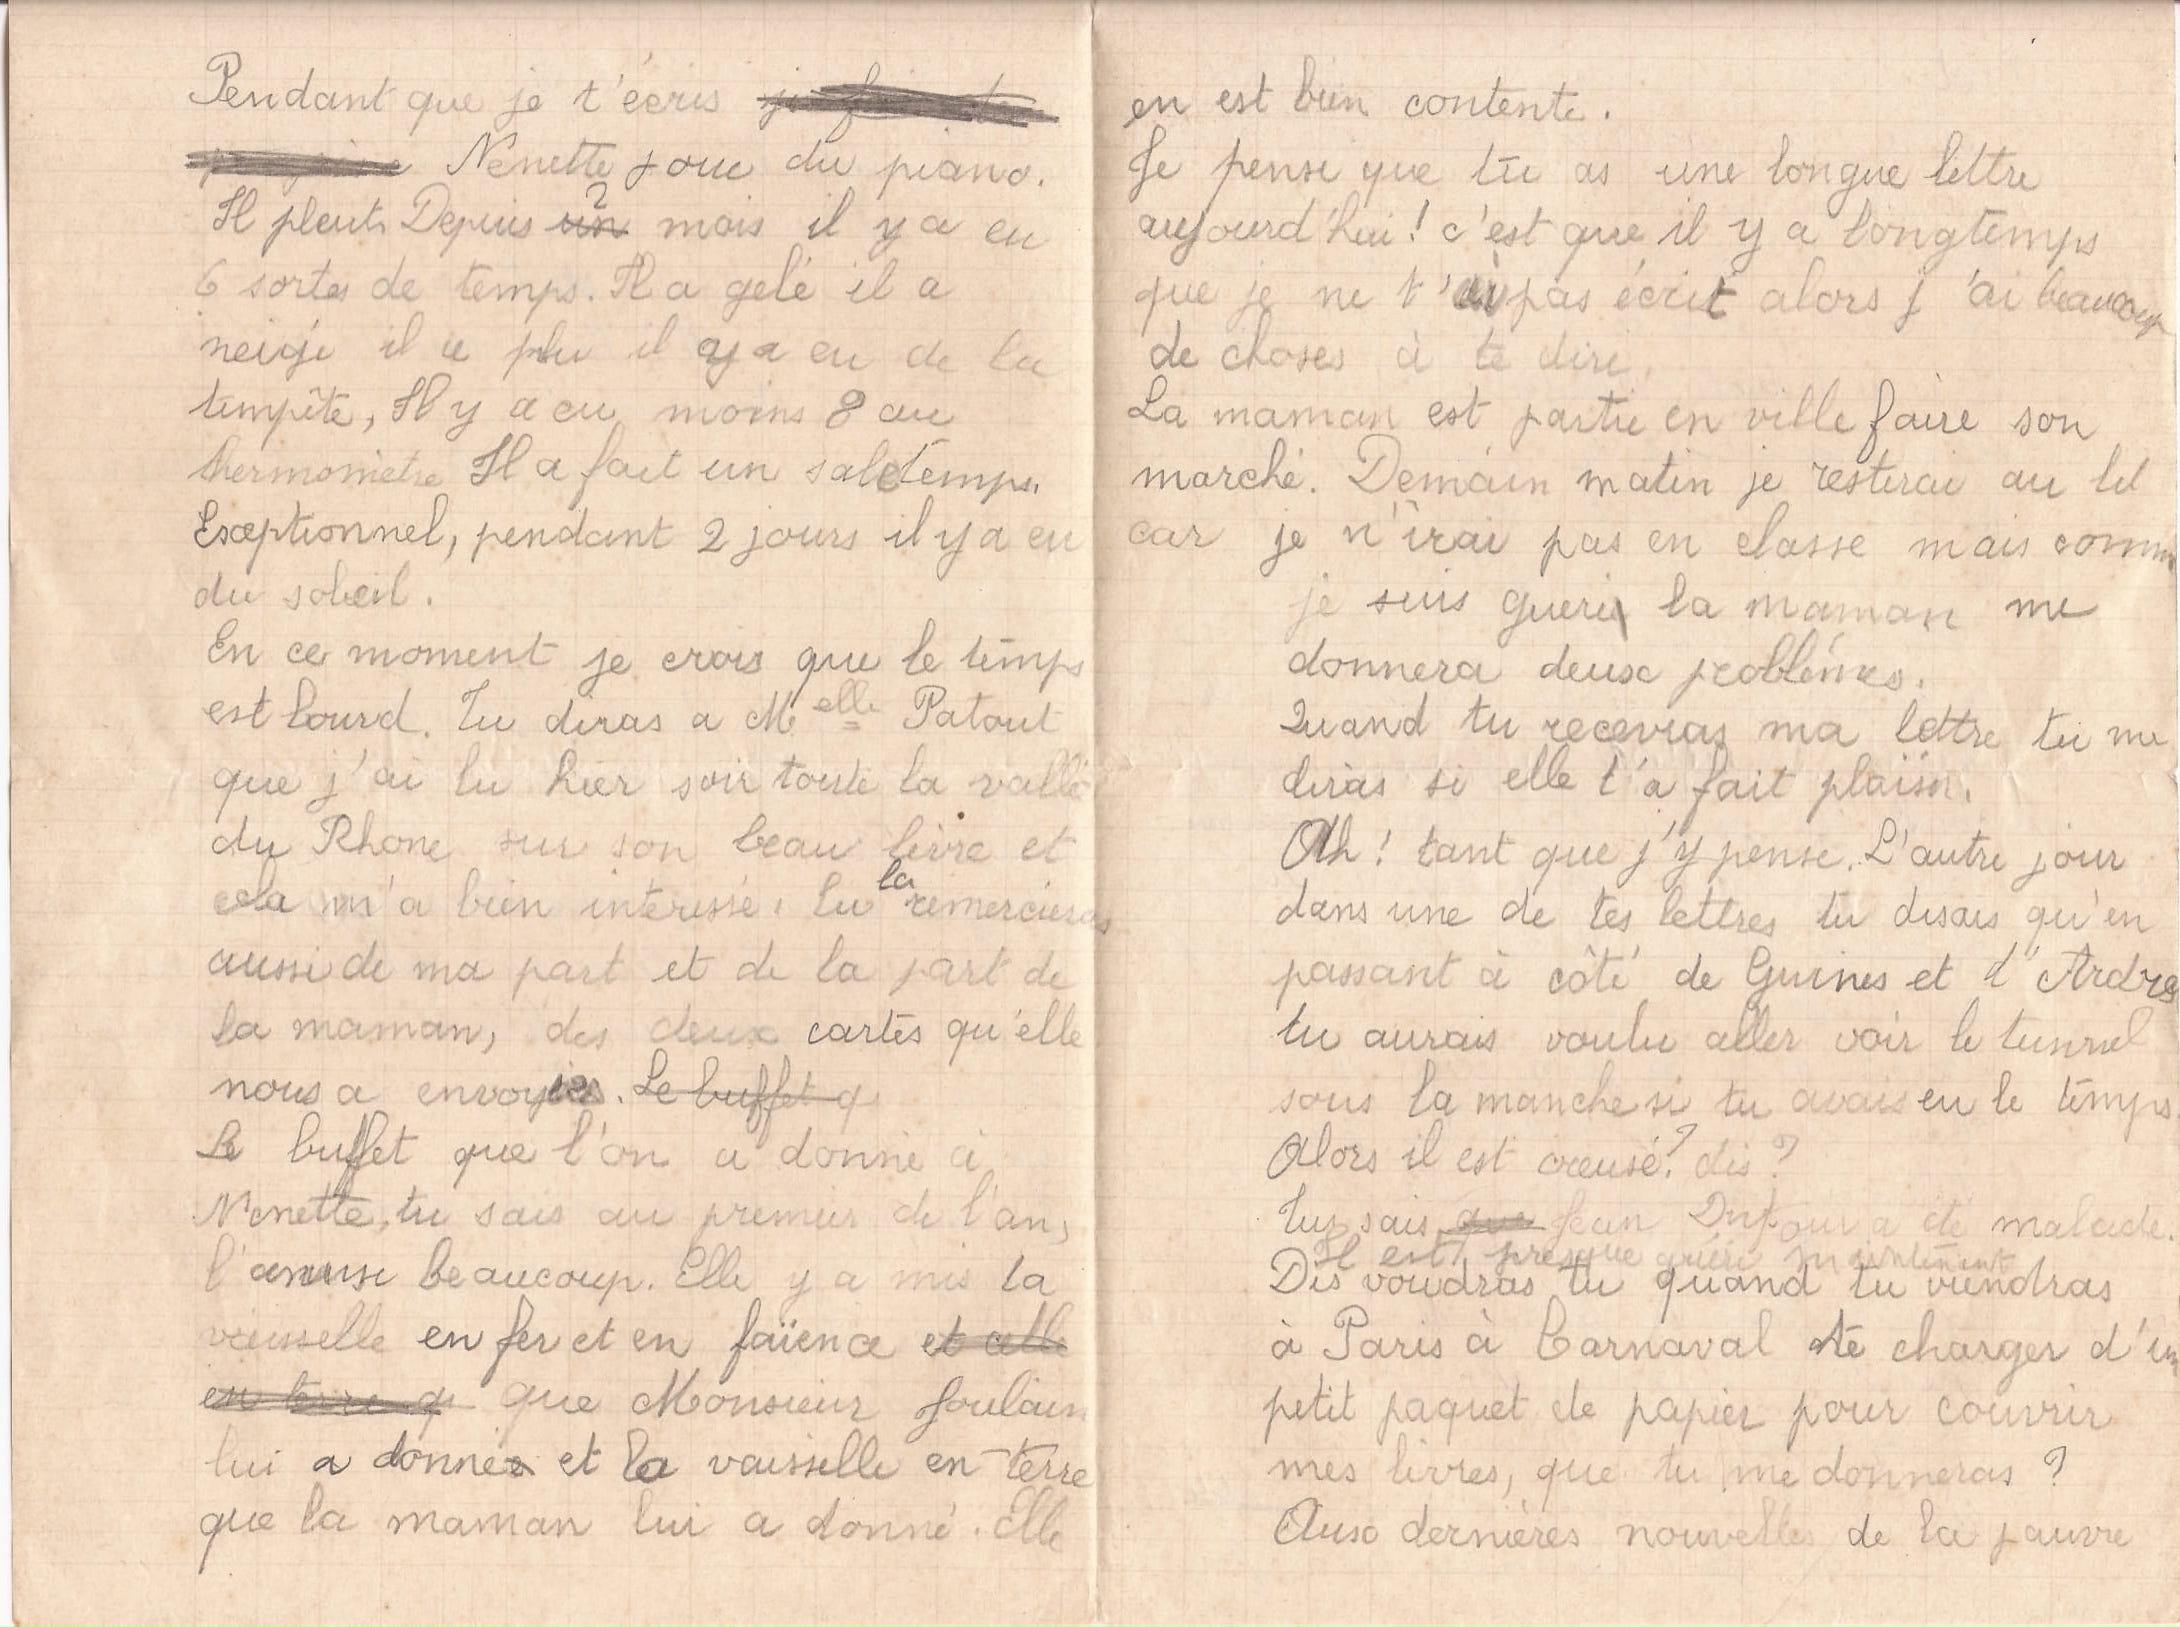 Pendant que je t'écris
Nenette joue du piano.
Il pleut. Depuis un 2 mois il y a eu
6 sortes de temps. Il a gelé il a
neigé il a plu il y a eu de la
tempête, Il y a eu moins 8 au
thermomètre Il a fait un sale temps.
Exceptionnel, pendant 2 jours il y a eu
du soleil.
En ce moment je crois que le temps
est lourd. Tu diras a Melle Patout
que j'ai lu hier soir toute la vallé
du Rhone sur son beau livre et
cela m'a bien interessé. tu la remercieras
aussi de ma part et de la part de
la maman, des deux cartes qu'elle
nous a envoyées. Le buffet q
Le buffet que l'on a donné à
Nenette, tu sais au premier de l'an,
l'amuse beaucoup. Elle y a mis la
vaisselle en fer et en faïence et celle
en terre q que Monsieur Joulain
lui a donnée et la vaisselle en terre
que la maman lui a donné. Elle
en est bien contente.
Je pense que tu as une longue lettre
aujourd'hui! c'est que il y a longtemps
que je ne t'ai pas écrit alors j'ai beaucoup
de choses à te dire.
La maman est partie en ville faire son
marché. Demain matin je resterai au lit
car je n'irai pas en classe mais comme
je suis gueri la maman me
donnera deux problémes.
Quand tu recevras ma lettre tu me
diras si elle t'a fait plaisir.
Ah! tant que j'y pense. L'autre jour
dans une de tes lettres tu disais qu'en
passant à côté de Guines et d'Ardres
tu aurais voulu aller voir le tunnel
sous la manche si tu avais eu le temps
Alors il est creusé? dis?
Tu sais que Jean Dufour a été malade.
Il est presque guéri maintenant
Dis voudras tu quand tu viendras
à Paris à Carnaval te charger d'un
petit paquet de papier pour couvrir
mes livres, que tu me donneras?
Aux dernières nouvelles de la pauvre